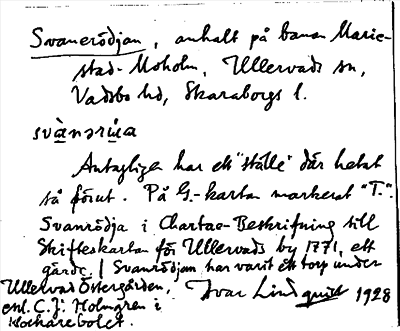 Svanerödjan, anhalt på banan Marie-
stad-Moholm, Ullervads sn,
Vadsbo hd, Skaraborgs l.
svànərúa
Antagligen har ett "ställe" där hetat
så förut. På G.-kartan markerat "T.".
Svanrödja i Chartae-Beskrifning till
Skifteskartan för Ullervads by 1771, ett
gärde. / Svanrödjan har varit ett torp under
Ullervad Östergården,
enl. C.J. Holmgren i
Klockarebolet.
Ivar Lindquist 1928